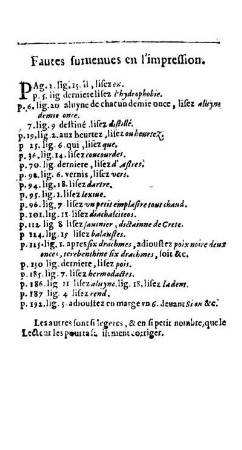 Fautes suruenues en l'impression.
PAg. 1. lig. 15. il, lisez ex.
p. 5. lig derniere lisez l'hydrophobie.
p. 6. lig. 20 aluyne de chacun demie once, lisez aluyne
demie once.
7. lig. 9 destiné. lisez distillé.
p. 19. lig. 2. aux heurtez, lisez ou heurtez.
p 25. lig. 6. qui, lisez que.
p. 36. lig. 14. lisez concourdes.
p. 70. lig. derniere, lisez d'Astres.
p. 92. lig. 6. vernis, lisez vers.
p. 94. lig. 18. lisez dartre.
p. 95. lig. 2. lisez lexiue.
p. 96. lig. 7. lisez vn petit emplastre tout chaud.
p. 101. lig. 11. lisez diachalciteos.
p. 112. lig 8 lisez saunier, dictainne de Crete.
p 114. lig. 17 lisez balaustes.
p. 115. lig. 1. apres six drachmes, adioustez poix noire deux
onces, terebenthine six drachmes, soit &c.
p. 150 lig. derniere, lisez pois.
p. 185. lig. 7. lisez hermodactes.
p. 186. lig 11 lisez aluyne. lig. 18. lisez ladent.
p. 187 lig. 4 lisez rend.
p. 192. lig. 5. adioustez en marge vn 6. deuant Si on &c.
Les autres sont si legeres, & en si petit nombre, que le
Lecteur les pourra facilement corriger.